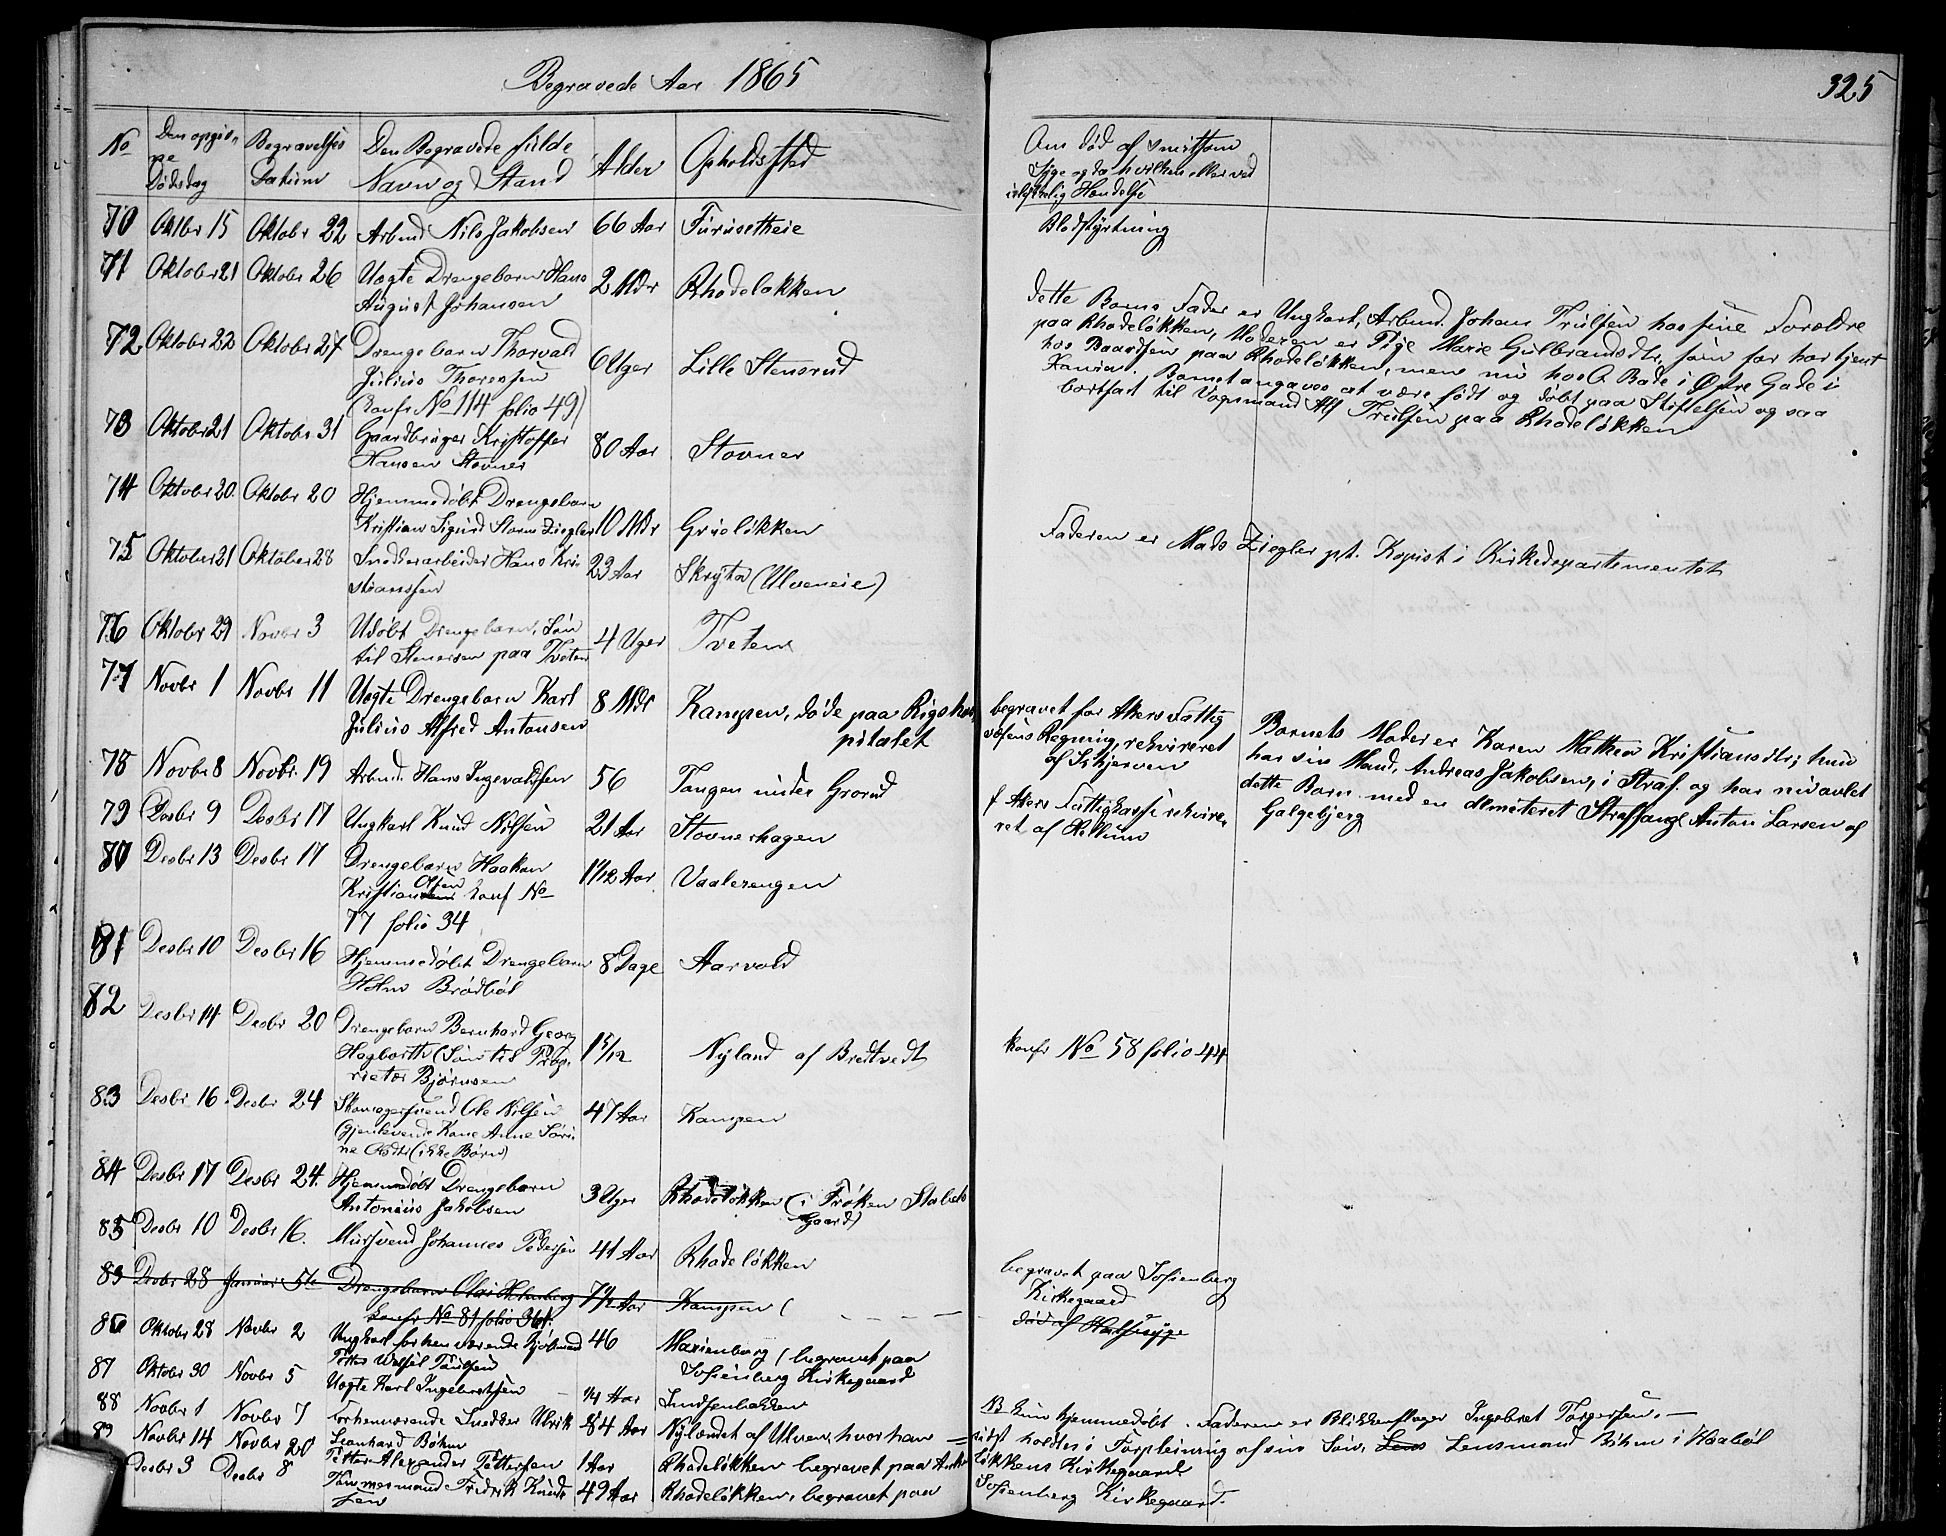 Begravede Aar 1865
325
No
Den opgiv-
ne
Dødsdag
Begravelses
Datum
Den Begravede fulde
Navn og Stand
Alder
Opholdssted
Om død af smitsom
Syge og da hvilken eller ved
Hændelse
70 Oktbr 15 Oktobr 22 Arbmd Nils Jakobsen 66 Aar Furusetheie Blodstyrtning
71 Oktober 21 Oktobr 26 Uægte Drengebarn Hans
August Johansen 2 Mdr Rhodeløkken
dette Barns Fader er Ungkarl, Arbmd. Johan Trulsen hos sine Forældre
paa Rhodeløkken, Moderen er Pige Marie Gulbrandsdtr, som før har tjent
hos Baardsen paa Rhodeløkken, men nu hos O. Bade i Øvre Gade i
Barnet angaves at være født og døbt paa Stiftelsen og saa
bortsat til Vognmand Alf Trulsen paa Rhodeløkken
72 Oktober 22 Oktobr 27 Drengebarn Thorvald
Julius Thoressen
(Confr No 114 folio 49) 6 Uger Lille Stensrud
73 Oktober 21 Oktobr 31 Gaardbruger Kristoffer
Hansen Stovner 80 Aar Stovner
74 Oktober 20. Oktobr 20 Hjemmedøbt Drengebarn
Kristian Sigurd Storm Ziegler 10 Mdr Grueløkken
Faderen er Mads Ziegler pt. Kopist i Kirkedepartementet
75 Oktober 21 Oktober 28 Snedkerarbeider Hans Kri-
stianssen 23 Aar Skryta (Ulveneie)
76 Oktober 29 Novbr 3 Udøbt Drengebarn, Søn
til Stenersen paa Tveten 4 Uger Tveten
77 Novbr 1 Novbr 11 Uægte Drengebarn Karl
Julius Alfred Antonsen 8 Mdr Kampen, døde paa Rigshos
pitalet
begravet for Akers Fattig
væsens Regning, rekvireret
af
Barnets Moder er Karen Mathea Kristiansdtr; hun
har sin Mand, Andreas Jakobsen, i Straf. og har nu avlet
dette Barn med en dimitteret Straffange Anton Larsen af
Galgebjerg
78 Novbr 8 Novbr. 19 Arbmd. Hans Ingevaldsen 56 Tangen under Grorud
79 Desbr 9 Desbr 17 Ungkarl Knud Nilsen 21 Aar Stovnerhagen
f Akers Fattigkasse rekvire-
ret af Kellum
80 Desbr 13 Desbr 17 Drengebarn Haakon
Olsen
Kristian Conf No
77 folio 34 1 1/12 Aar Vaalerengen
81 Desbr 10 Desbr 16 Hjemmedøbt Drengebarn
Holm Brødbøl 8 Dage Aarvold
82 Desbr 14 Desbr 20 Drengebarn Bernhard Georg
Hagbarth (Søn til Prop-
rietær Bjørnsen 1 5/12 Nyland af Bredtvedt
konfr No 58 folio 44
83 Desbr 16 Desbr 24 Skomagersvend Ole Nilsen
(gjenlevende Kone Anne Søri-
ne Olsdtr (ikke Børn) 47 Aar Kampen
84 Desbr 17 Desbr 24. Hjemmedøbt Drengebarn
Antonius Jakobsen 3 Uger Rhodeløkken (i Frøken Stabels
Gaard)
85 Desbr 10 Desbr 16. Mursvend Johannes Pedersen 41 Aar Rhodeløkken
begravet paa Sofienberg
Kirkegaard
85 Desbr 28 Januar 5te Drengebarn Olai Holmberg 7 1/2 Aar Kampen (
død af Halssyge
Confr No 81 folio 361.
86 Oktober 28 Novbr 2 Ungkarl forhenværende Kjøbmand
46 Marienborg (begravet paa
Sofienberg Kirkegaard
87 Oktobr 30 Novbr 5 Uægte Karl Ingebretsen 1/4 Aar
NB kun hjemmedøbt. Faderen er Blikkenslager Ingebret Torgersen. —
88 Novbr 1 Novbr 7 Forhenværende Snedker Ulrik
Leonhard Böhm 84 Aar Nylændet af Ulven, hvor han —
sidst holdtes i Forpleining af sin Søn, Lens Lensmand Böhm i Haabøl
89 Novbr 14 Novbr 20 Petter Alexander Pettersen 1 Aar Rhodeløkken begravet paa Anker
løkkens Kirkegaard
Desbr 3 Desbr 8 Tømmermand Fredrik Knud-
sen 49 Aar Rhodeløkken, begravet paa
Sofienberg Kirkegaard.